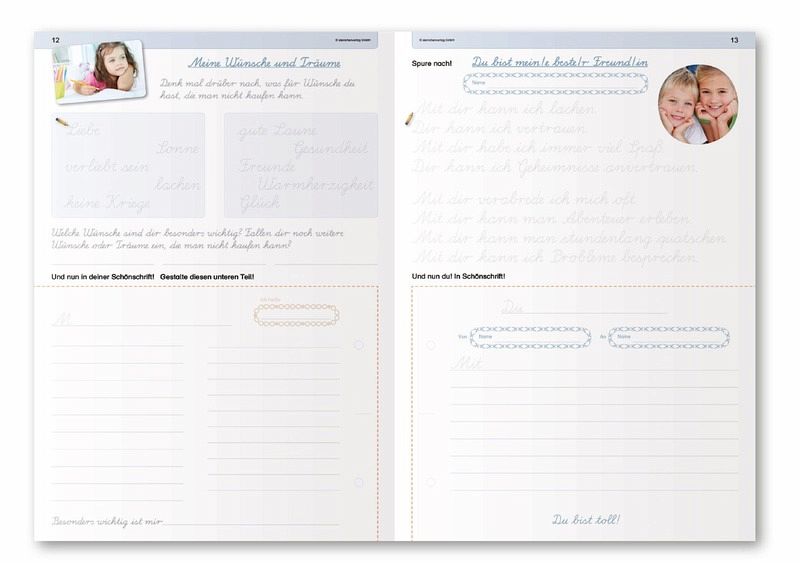 12
© sternchenverlag GmbH
Meine Wünsche und Träume
Denk mal drüber nach, was für Wünsche du
hast, die man nicht kaufen kann.
Liebe
Sonne
verliebt sein
lachen
keine Kriege
gute Laune
Gesundheit
Freunde
Warmherzigkeit
Glück
Welche Wünsche sind dir besonders wichtig? Fallen dir noch weitere
Wünsche oder Träume ein, die man nicht kaufen kann?
Und nun in deiner Schönschrift! Gestalte diesen unteren Teil!
M
Besonders wichtig ist mir
© sternchenverlag GmbH
13
Spure nach!
Du bist mein/e beste/r Freund/in
Name
Mit dir kann ich lachen.
Dir kann ich vertrauen.
Mit dir habe ich immer viel Spaß.
Dir kann ich Geheimnisse anvertrauen.
Mit dir verabrede ich mich oft.
Mit dir kann man Abenteuer erleben.
Mit dir kann man stundenlang quatschen.
Mit dir kann ich Probleme besprechen.
Und nun du! In Schönschrift!
Du
Von
Name
An
Name
Mit
Du bist toll!